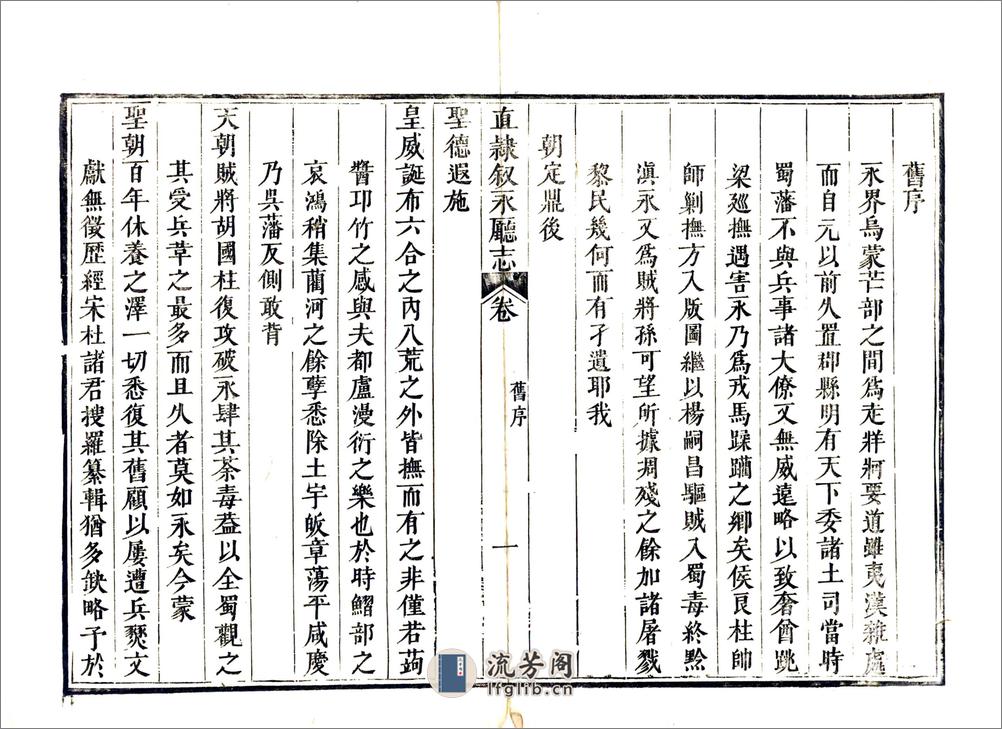 舊序
永界烏蒙芒部之間為走牂牁要道雖夷漢雜處
而自元以前久置郡縣明有天下委諸土司當時
蜀藩不與兵事諸大僚又無威遠略以致奢酋跳
梁廵撫遇害永乃為戎馬蹂躪之鄉矣侯良柱帥
師剿撫方入版圖繼以楊嗣昌驅賊入蜀毒終黔
滇永又為賊將孫可望所據凋殘之餘加諸屠戮
黎民幾何而有孑遺耶我
朝定鼎後
直隷叙永廳志 卷 舊序 一
聖德遐施
皇威誕布六合之內八荒之外皆撫而有之非僅若蒟
醬卭竹之感與夫都盧漫衍之樂也於時鰼部之
哀鴻稍集藺河之餘孽悉除土宇皈章蕩平咸慶
乃吳藩反側敢背
天朝賊將胡國柱復攻破永肆其荼毒葢以全蜀觀之
其受兵革之最多而且久者莫如永矣今蒙
聖朝百年休養之澤一切悉復其舊顧以屢遭兵燹文
獻無徵歷經宋杜諸君搜羅纂輯猶多缺略予於
流芳阁
lfglib.cn